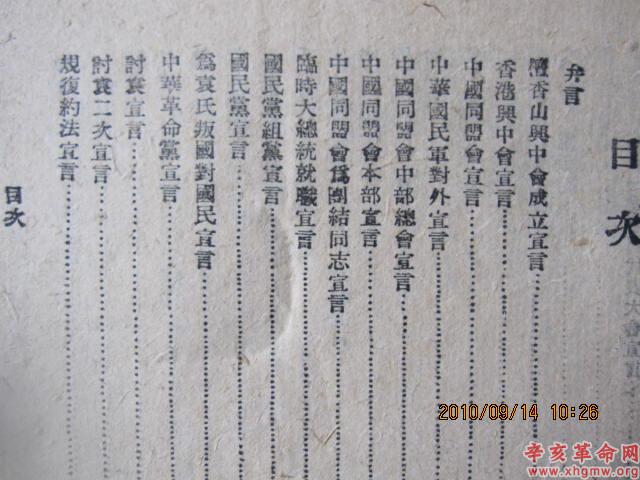 目次
弁言
檀香山興中會成立宣言
香港興中會宣言
中國同盟會宣言
中華國民軍對外宣言
中國同盟會中部總會宣言
中國同盟會本部宣言
中國同盟會爲團結同志宣言
臨時大總統就職宣言
國民黨組黨宣言
國民黨宣言
爲袁氏叛國對國民宣言
中華革命黨宣言
討袁宣言
討袁二次宣言
規復約法宣言
目次
2010/09/14 10:26
辛亥革命网
www.xhgmw.org